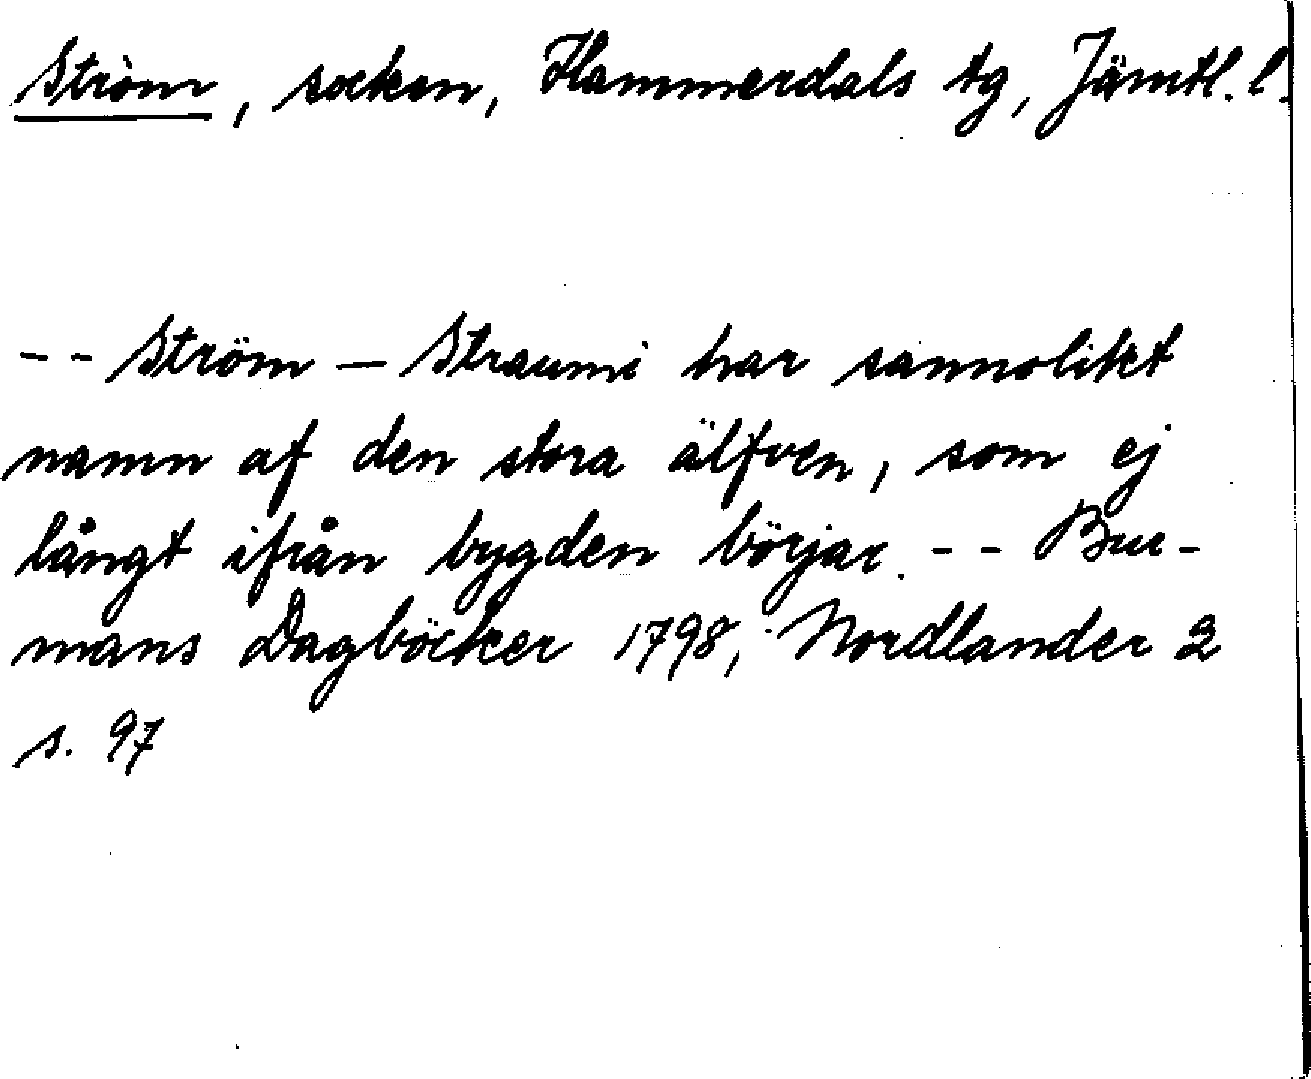 Ström, socken, Hammerdals tg, Jämtl. l.
-- Ström – Straumi har sannolikt
namn af den stora älfven, som ej
långt ifrån bygden börjar. -- Bur-
mans Dagböcker 1798, Nordlander 2
s. 97